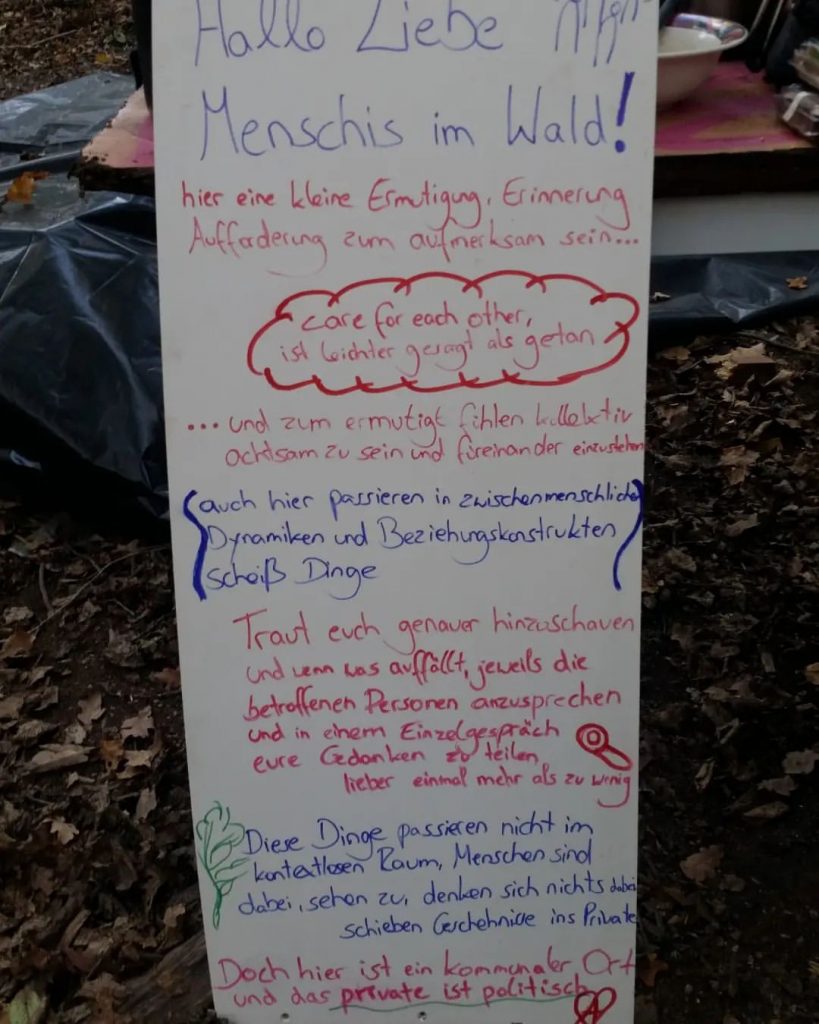 Hallo Liebe
Menschis im Wald!
hier eine kleine Ermutigung, Erinnerung
Aufforderung zum aufmerksam sein...
care for each other,
ist leichter gesagt als getan
... und zum ermutigt fühlen kollektiv
achtsam zu sein und füreinander einzustehen
auch hier passieren in zwischenmenschlichen
Dynamiken und Beziehungskonstrukten
scheiß Dinge
Traut euch genauer hinzuschauen
und wenn was auffällt, jeweils die
betroffenen Personen anzusprechen
und in einem Einzelgespräch
eure Gedanken zu teilen,
lieber einmal mehr als zu wenig
Diese Dinge passieren nicht im
kontextlosen Raum, Menschen sind
dabei, sehen zu, denken sich nichts dabei
schieben Geschehnisse ins Private
Doch hier ist ein kommunaler Ort
und das private ist politisch